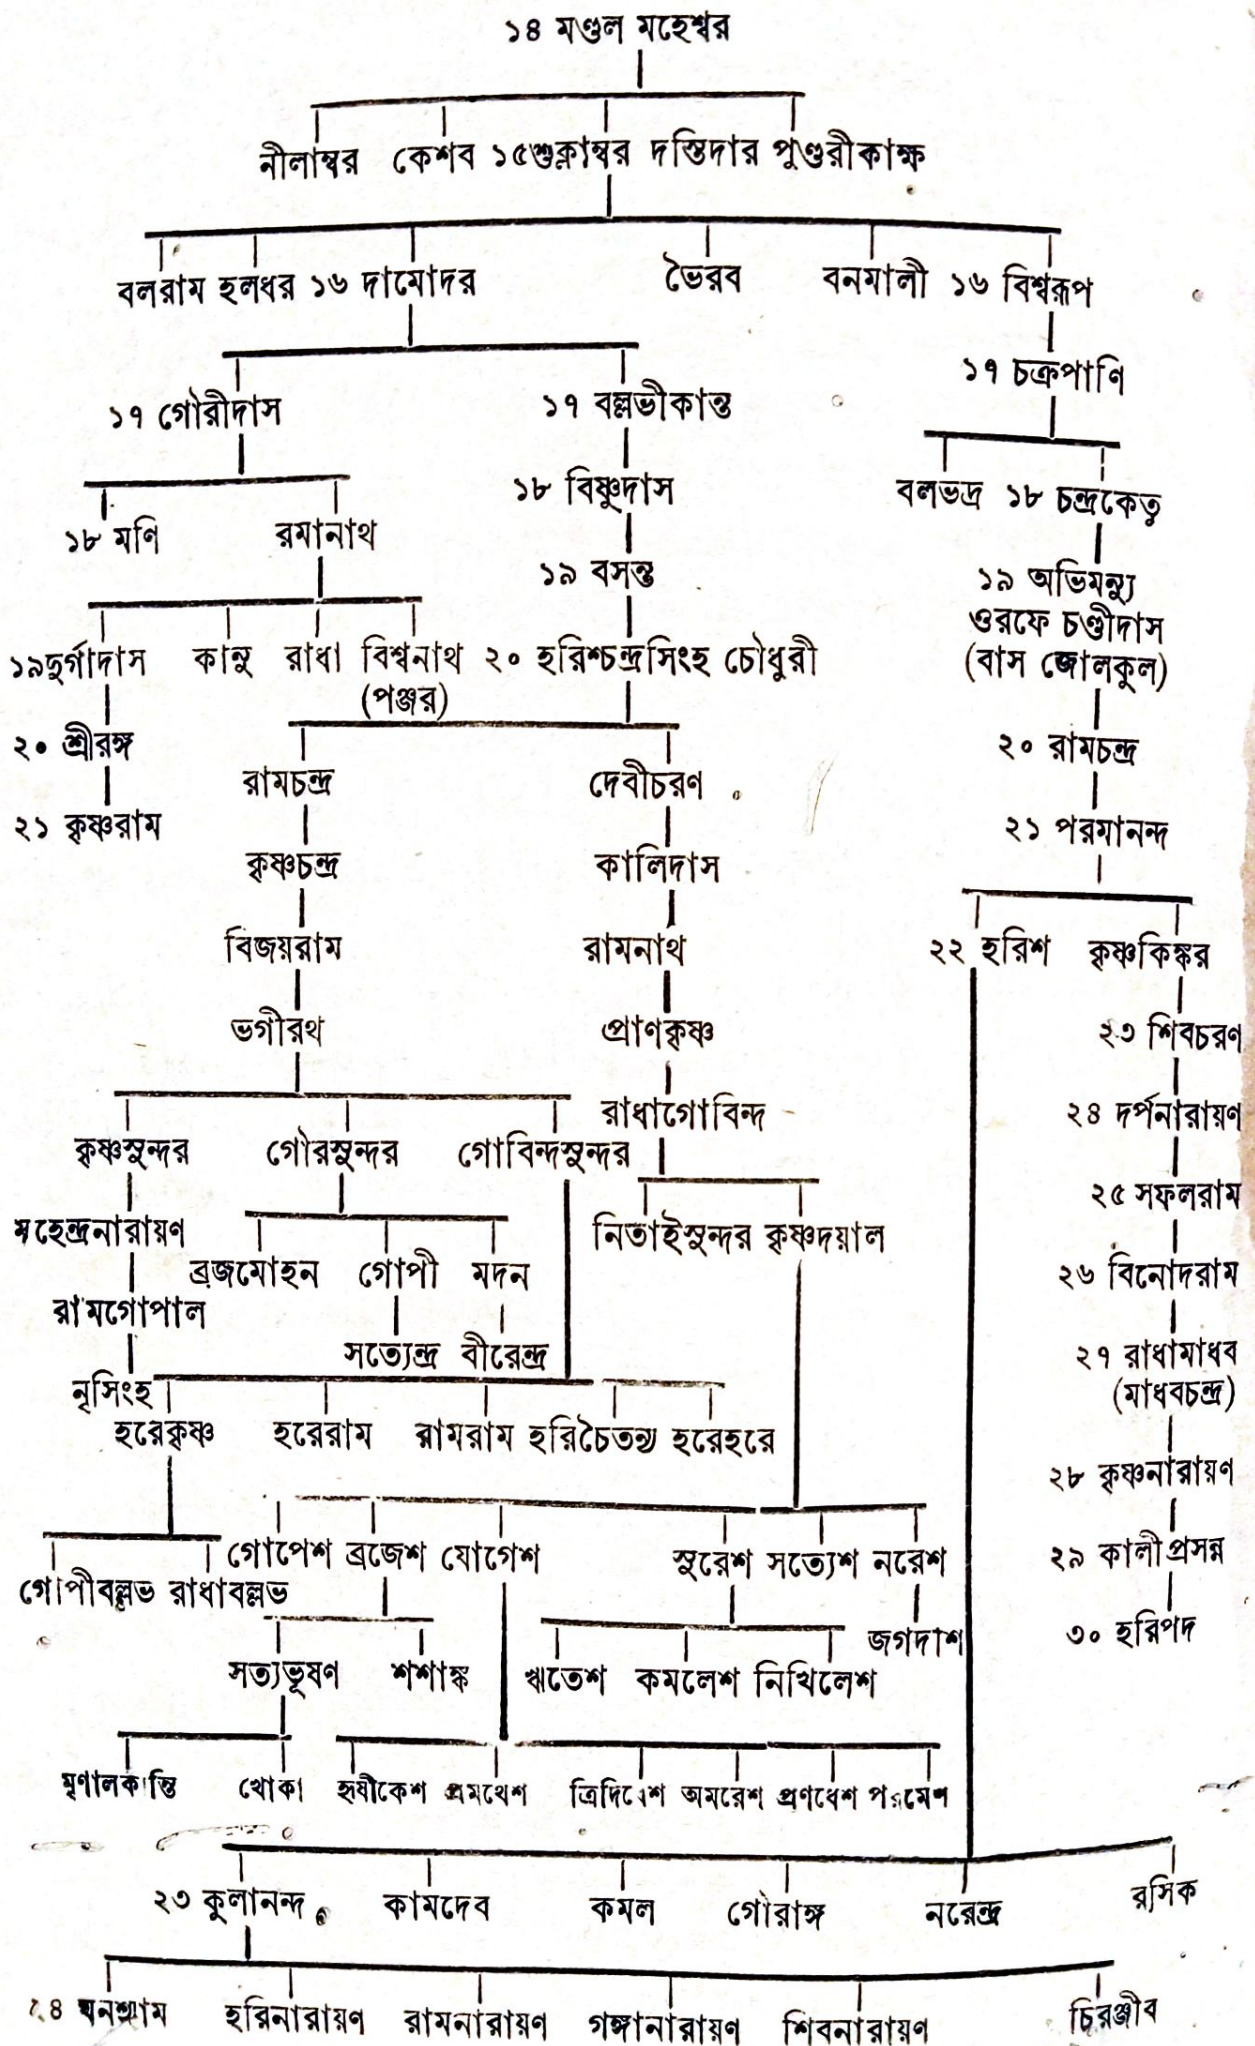 ১৪ মণ্ডল মহেশ্বর
নীলাম্বর কেশব ১৫শুক্লাম্বর দস্তিদার পুণ্ডরীকাক্ষ
বলরাম হলধর ১৬ দামোদর ভৈরব বনমালী ১৬ বিশ্বরূপ
১৭ চক্রপাণি
১৭ গৌরীদাস ১৭ বল্লভীকান্ত
১৮ বিষ্ণুদাস বলভদ্র ১৮ চন্দ্রকেতু
১৮ মণি রমানাথ
১৯ বসন্ত ১৯ অভিমন্যু
ওরফে চণ্ডীদাস
১৯দুর্গাদাস কানু রাধা বিশ্বনাথ ২০ হরিশ্চন্দ্রসিংহ চৌধুরী (বাস জোলকুল)
(পঞ্জর)
২০ শ্রীরঙ্গ ২০ রামচন্দ্র
রামচন্দ্র দেবীচরণ
২১ কৃষ্ণরাম ২১ পরমানন্দ
কৃষ্ণচন্দ্র কালিদাস
বিজয়রাম রামনাথ ২২ হরিশ কৃষ্ণকিঙ্কর
ভগীরথ প্রাণকৃষ্ণ ২৩ শিবচরণ
রাধাগোবিন্দ ২৪ দর্পনারায়ণ
কৃষ্ণসুন্দর গৌরসুন্দর গোবিন্দসুন্দর
২৫ সফলরাম
মহেন্দ্রনারায়ণ নিতাইসুন্দর কৃষ্ণদয়াল
ব্রজমোহন গোপী মদন ২৬ বিনোদরাম
রামগোপাল
সত্যেন্দ্র বীরেন্দ্র ২৭ রাধামাধব
নৃসিংহ (মাধবচন্দ্র)
হরেকৃষ্ণ হরেরাম রামরাম হরিচৈতন্য হরেহরে
২৮ কৃষ্ণনারায়ণ
গোপেশ ব্রজেশ যোগেশ সুরেশ সত্যেশ নরেশ ২৯ কালীপ্রসন্ন
গোপীবল্লভ রাধাবল্লভ
জগদীশ ৩০ হরিপদ
সত্যভূষণ শশাঙ্ক ঋতেশ কমলেশ নিখিলেশ
মৃণালকান্তি খোকা হৃষীকেশ প্রমথেশ ত্রিদিবেশ অমরেশ প্রণধেশ
২৩ কুলানন্দ কামদেব কমল গৌরাঙ্গ নরেন্দ্র রসিক
২৪ ঘনশ্যাম হরিনারায়ণ রামনারায়ণ গঙ্গানারায়ণ শিবনারায়ণ চিরঞ্জীব